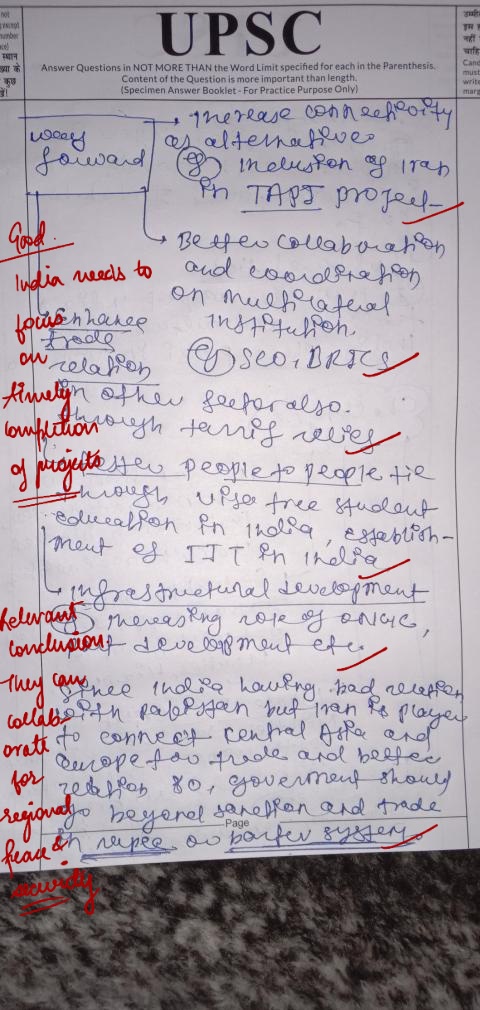 UPSC
Answer Questions in NOT MORE THAN the Word Limit specified for each in the Parenthesis.
Content of the Question is more important than length.
(Specimen Answer Booklet - For Practice Purpose Only)
ways
forward
→ increase connectivity
as alternative
eg inclusion of Iran
in TAPI project
→ Better collaboration
and coordination
on multilateral
institution.
eg SCO, BRICS
Enhance
trade
relation
in other sector also.
through tarrif relief
people to people tie
through visa free student
education in India, establish-
ment of IIT in India
→ infrastructural development
increasing role of ONGC,
development etc.
Since India having bad relation
with pakistan but Iran is player
to connect central Asia and
Europe for trade and better
relation so, government should
go beyond sanction and trade
in rupee or barter system.
Page
Good
India needs to
focus
on
timely
completion
of projects
Relevant
conclusion
They can
collab-
orate
for
regional
peace &
security